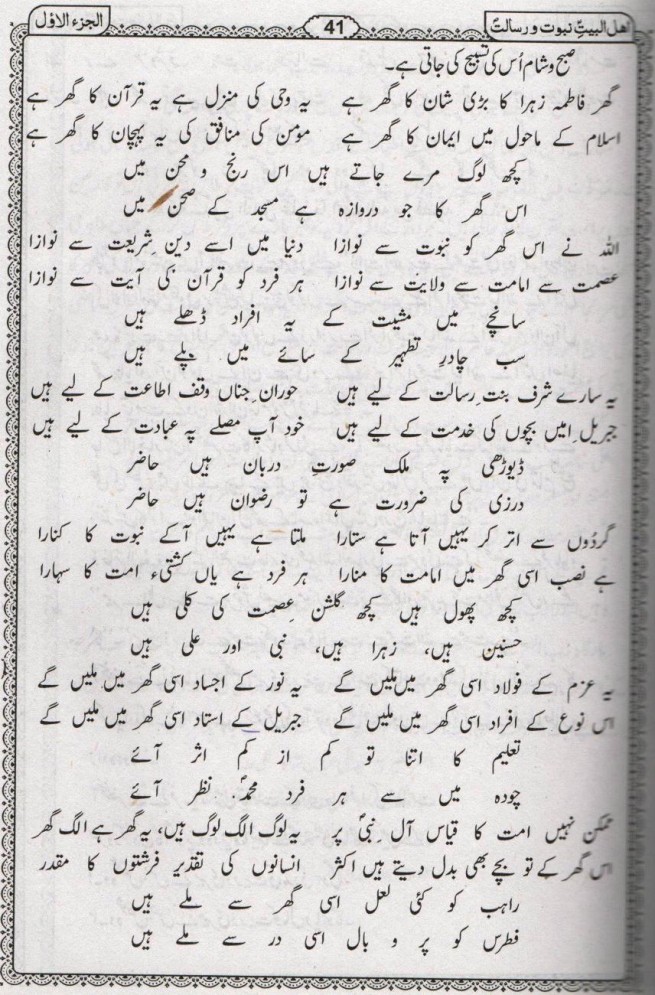 اھل البیتِؑ نبوت و رسالتؐ 41 الجزء الاوّل
صبح و شام اُس کی تسبیح کی جاتی ہے۔
گھر فاطمہ زہرا کا بڑی شان کا گھر ہے یہ وحی کی منزل ہے یہ قرآن کا گھر ہے
اسلام کے ماحول میں ایمان کا گھر ہے مؤمن کی منافق کی یہ پہچان کا گھر ہے
کچھ لوگ مرے جاتے ہیں اس رنج و محن میں
اس گھر کا جو دروازہ ہے مسجد کے صحن میں
اللہ نے اس گھر کو نبوت سے نوازا دنیا میں اسے دین شریعت سے نوازا
عصمت سے امامت سے ولایت سے نوازا ہر فرد کو قرآن کی آیت سے نوازا
سانچے میں مشیت کے یہ افراد ڈھلے ہیں
سب چادرِ تطہیر کے سائے میں پلے ہیں
یہ سارے شرف بنت رسالت کے لیے ہیں حوران جناں وقف اطاعت کے لیے ہیں
جبریل امیں بچوں کی خدمت کے لیے ہیں خود آپ مصلے پہ عبادت کے لیے ہیں
ڈیوڑھی پہ ملک صورتِ درباں ہیں حاضر
درزی کی ضرورت ہے تو رضواں ہیں حاضر
گردُوں سے اتر کر یہیں آتا ہے ستارا ملتا ہے یہیں آکے نبوت کا کنارا
ہے نصب اسی گھر میں امامت کا منارا ہر فرد ہے یاں کشتیء امت کا سہارا
کچھ پھول ہیں کچھ گلشن عصمت کی کلی ہیں
حسنین ہیں، زہرا ہیں، نبی اور علی ہیں
یہ عزم کے فولاد اسی گھر میں ملیں گے یہ نور کے اجساد اسی گھر میں ملیں گے
اس نوع کے افراد اسی گھر میں ملیں گے جبریل کے استاد اسی گھر میں ملیں گے
تعلیم کا اتنا تو کم از کم اثر آئے
چودہ میں سے ہر فرد محمدؐ نظر آئے
ممکن نہیں امت کا قیاس آل نبیؐ پر یہ لوگ الگ لوگ ہیں، یہ گھر ہے الگ گھر
اس گھر کے تو بچے بھی بدل دیتے ہیں اکثر انسانوں کی تقدیر فرشتوں کا مقدر
راہب کو کئی لعل اسی گھر سے ملے ہیں
فطرس کو پر و بال اسی در سے ملے ہیں